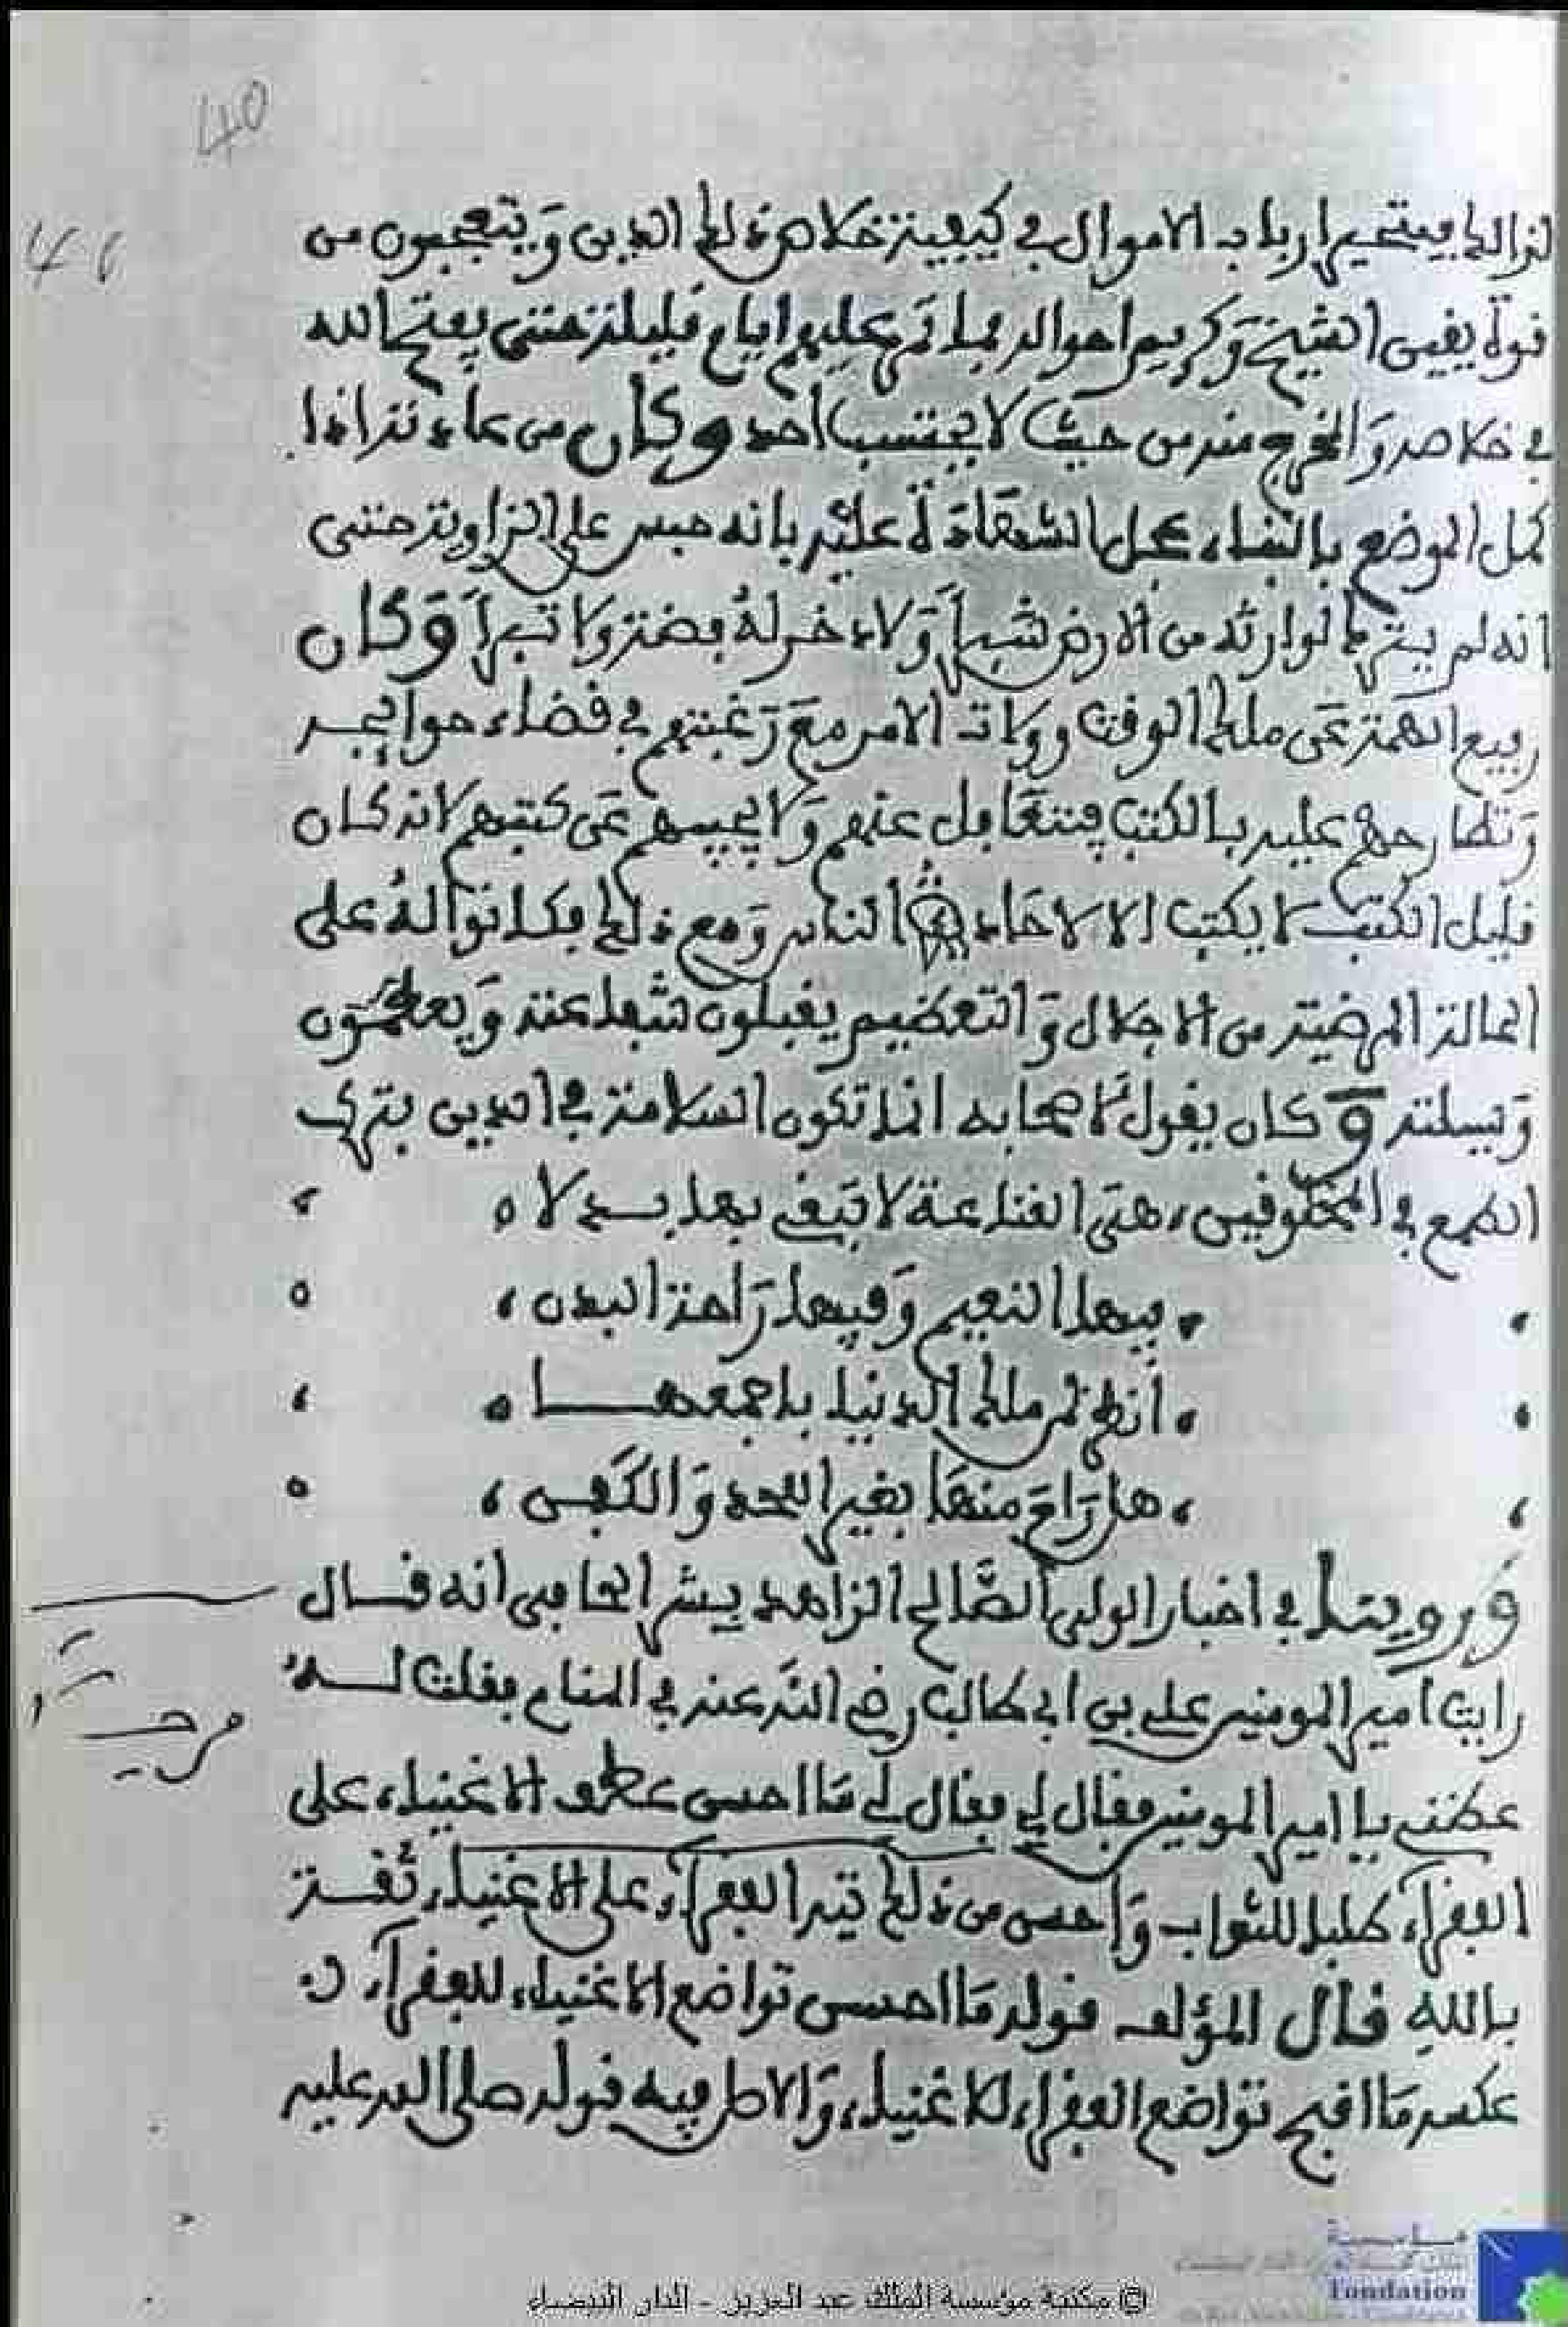 40
46
لذالك فيتحير ارباب الاموال في كيفية خلاص ذلك الدين ويتعجبون من
قوة يقين الشيخ وكريم احواله فما تمر عليهم ايام قليلة حتى يفتح الله
في خلاصه والمخرج منه من حيث لا يحتسب احد وكان من عادته اذا
كمل الموضع بالبناء عمل الشهادة عليه بانه حبس على الزاوية حتى
انه لم يترك لوارثه من الارض شبرا ولا دخر له فضة ولا تبرا وكان
رفيع الهمة عن ملك الوقت وولات الامر مع رغبتهم في قضاء حوائجه
وتطارحهم عليه بالكتب فيتغافل عنهم ولا يجيبهم عن كتبهم لانه كان
قليل الكتب لا يكتب الا لاحاد الناس ومع ذلك فكانوا له على
الحالة المرضية من الاجلال والتعظيم يقبلون شفاعته ويعظمون
وسيلته وكان يقول لاصحابه انما تكون السلامة في الدين بترك
الطمع في المخلوقين، هي القناعة لا تبغي بها بدلا
فيها النعيم وفيها راحة البدن
أنظر لمن ملك الدنيا باجمعها
هل راح منها بغير اللحد والكفن
وروينا في اخبار الولي الصالح الزاهد بشر الحافي انه قال
رايت امير المومنين علي بن ابي طالب رضي الله عنه في المنام فقلت له
عظني يا امير المومنين فقال لي فقال لي ما احسن عطف الاغنياء على
الفقراء طلبا للثواب واحسن من ذلك تيه الفقراء على الاغنياء ثقة
بالله قال المؤلف قوله ما احسن تواضع الاغنياء للفقراء
عكسه ما اقبح تواضع الفقراء للاغنياء، والاصل فيه قوله صلى الله عليه
Foundation
© مكتبة مؤسسة الملك عبد العزيز - الدار البيضاء